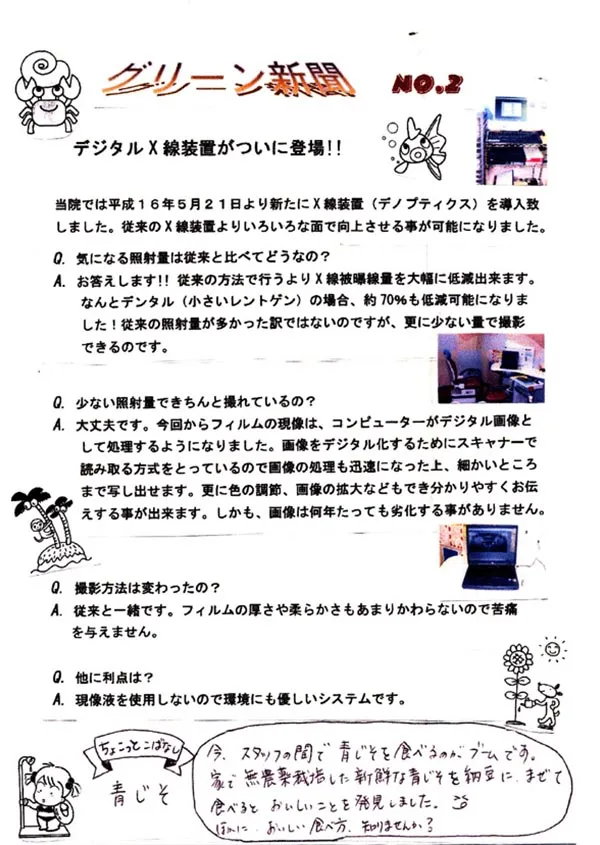 グリーン新聞 NO.2
デジタルX線装置がついに登場!!
当院では平成16年5月21日より新たにX線装置（デノプティクス）を導入致
しました。従来のX線装置よりいろいろな面で向上させる事が可能になりました。
Q. 気になる照射量は従来と比べてどうなの？
A. お答えします!! 従来の方法で行うよりX線被曝線量を大幅に低減出来ます。
なんとデンタル（小さいレントゲン）の場合、約70％も低減可能になりま
した！従来の照射量が多かった訳ではないのですが、更に少ない量で撮影
できるのです。
Q. 少ない照射量できちんと撮れているの？
A. 大丈夫です。今回からフィルムの現像は、コンピューターがデジタル画像と
して処理するようになりました。画像をデジタル化するためにスキャナーで
読み取る方式をとっているので画像の処理も迅速になった上、細かいところ
まで写し出せます。更に色の調節、画像の拡大などもでき分かりやすくお伝
えする事が出来ます。しかも、画像は何年たっても劣化する事がありません。
Q. 撮影方法は変わったの？
A. 従来と一緒です。フィルムの厚さや柔らかさもあまりかわらないので苦痛
を与えません。
Q. 他に利点は？
A. 現像液を使用しないので環境にも優しいシステムです。
ちょこっとこばなし
青じそ
今、スタッフの間で青じそを食べるのがブームです。
家で無農薬栽培した新鮮な青じそを納豆に、まぜて
食べると おいしいことを発見しました。
ほかに、おいしい食べ方、知りませんか？